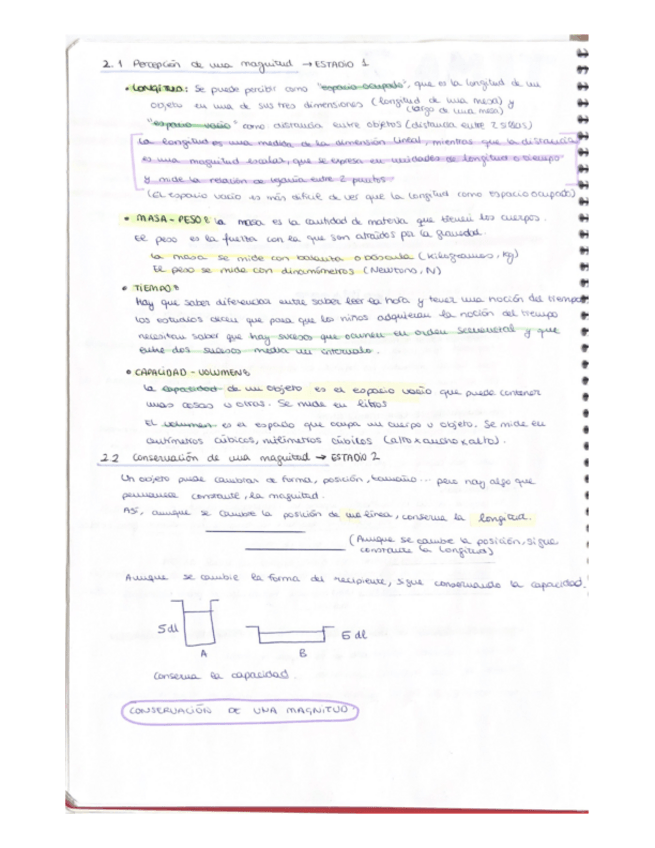 2.1 Percepción de una magnitud → ESTADIO 1
• LONGITUD: Se puede percibir como "espacio ocupado", que es la longitud de un
objeto en una de sus tres dimensiones (longitud de una mesa) y
(largo de una mesa)
"espacio vacío" como distancia entre objetos (distancia entre 2 sillas)
La longitud es una medida de la dimensión lineal, mientras que la distancia
es una magnitud escalar, que se expresa en unidades de longitud o tiempo
y mide la relación de lejanía entre 2 puntos
(El espacio vacío es más difícil de ver que la longitud como espacio ocupado)
• MASA - PESO: La masa es la cantidad de materia que tienen los cuerpos.
El peso es la fuerza con la que son atraídos por la gravedad.
La masa se mide con balanza o báscula (kilogramos, kg)
El peso se mide con dinamómetros (Newtons, N)
• TIEMPO:
Hay que saber diferenciar entre saber leer la hora y tener una noción del tiempo
los estudios dicen que para que los niños adquieran la noción del tiempo
necesitan saber que hay sucesos que ocurren en orden secuencial y que
entre dos sucesos media un intervalo.
• CAPACIDAD - VOLUMEN:
La capacidad de un objeto es el espacio vacío que puede contener
unas cosas u otras. Se mide en litros
El volumen es el espacio que ocupa un cuerpo u objeto. Se mide en
centímetros cúbicos, milímetros cúbicos (alto x ancho x alto).
2.2 Conservación de una magnitud → ESTADIO 2
Un objeto puede cambiar de forma, posición, tamaño... pero hay algo que
permanece constante, la magnitud.
Así, aunque se cambie la posición de una línea, conserva la longitud.
(Aunque se cambie la posición, sigue
constante la longitud)
Aunque se cambie la forma del recipiente, sigue conservando la capacidad.
5 dl
A
B
5 dl
Conserva la capacidad.
CONSERVACIÓN DE UNA MAGNITUD